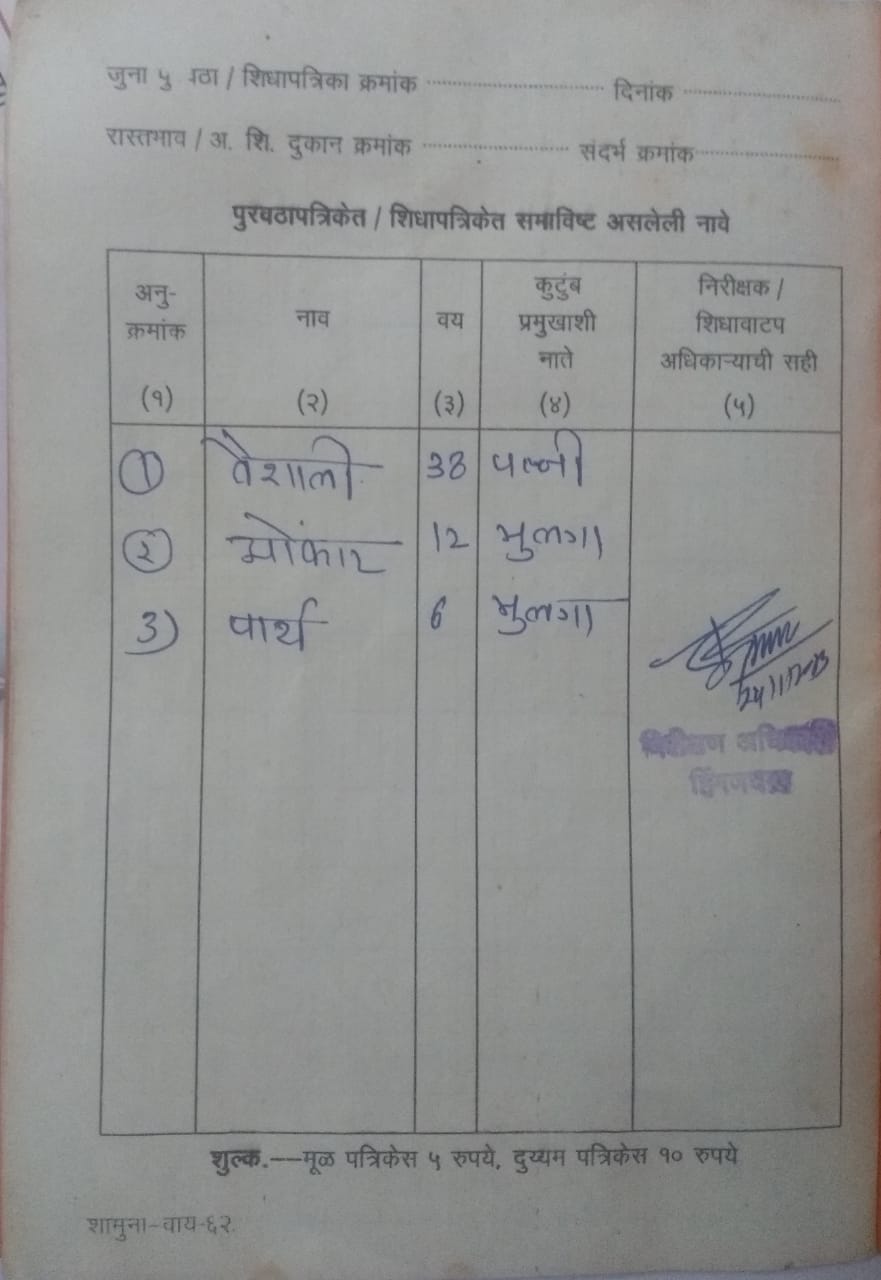 जुना पु वठा / शिधापत्रिका क्रमांक ........................ दिनांक ........................
रास्तभाव / अ. शि. दुकान क्रमांक ........................ संदर्भ क्रमांक ........................
पुरवठापत्रिकेत / शिधापत्रिकेत समाविष्ट असलेली नावे
अनु-क्रमांक नाव वय कुटुंब प्रमुखाशी नाते निरीक्षक / शिधावाटप अधिकाऱ्याची सही
(१) (२) (३) (४) (५)
1 वैशाली 38 पत्नी
२ ओंकार 12 मुलगा
3) पार्थ 6 मुलगा
निरीक्षण अधिकारी
शुल्क.—मूळ पत्रिकेस ५ रुपये, दुय्यम पत्रिकेस १० रुपये
शामुना-वाय-६२